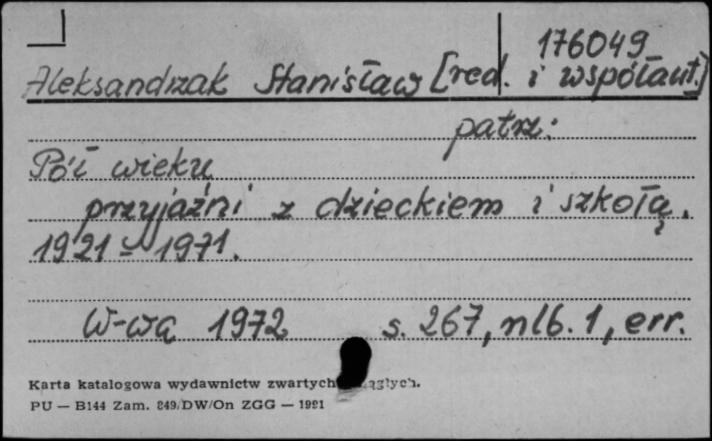 176049
Aleksandrzak Stanisław [red. i współaut.]
patrz:
Pół wieku
przyjaźni z dzieckiem i szkołą.
1921-1971.
W-wa 1972 s. 267, nlb. 1, err.
Karta katalogowa wydawnictw zwartych
PU — B144 Zam. 849/DW/On ZGG — 1991